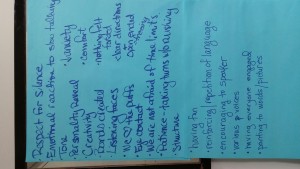 Respect for Silence
Emotional reaction to stop talking
Tone
Personality Reveal
Creativity
bonds created
Listening faces
We ♡ the puffs
Eye contact
We are not afraid of time limits
Patience - taking turns w/o rushing
Structure
• having fun
• reinforcing/repetition of language
• encouraging to speaker
• various voices
• having everyone engaged
• pointing to words/pictures
• variety
• comfort
• nothing felt
forced
• clear directions
• open ended